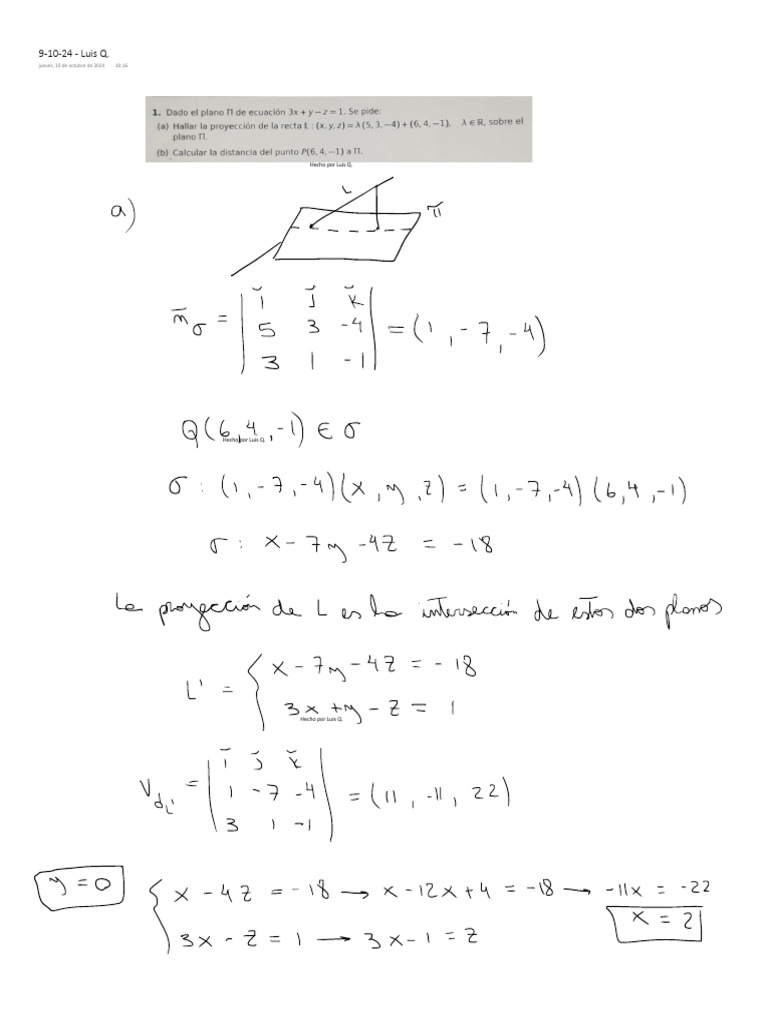 9-10-24 - Luis Q.
jueves, 10 de octubre de 2024 10:16
1. Dado el plano Π de ecuación 3x + y − z = 1. Se pide:
(a) Hallar la proyección de la recta L : (x, y, z) = λ(5, 3, −4) + (6, 4, −1), λ ∈ R, sobre el
plano Π.
(b) Calcular la distancia del punto P(6, 4, −1) a Π.
Hecho por Luis Q.
a)
L
π
n̄σ = | i j k |
| 5 3 -4 | = (1, -7, -4)
| 3 1 -1 |
Q(6, 4, -1) ∈ σ
Hecho por Luis Q.
σ : (1, -7, -4)(x, y, z) = (1, -7, -4)(6, 4, -1)
σ : x - 7y - 4z = -18
La proyección de L es la intersección de estos dos planos
L' = { x - 7y - 4z = -18
3x + y - z = 1
Hecho por Luis Q.
VdL' = | i j k |
| 1 -7 -4 | = (11, -11, 22)
| 3 1 -1 |
y = 0 { x - 4z = -18 → x - 12x + 4 = -18 → -11x = -22
x = 2
3x - z = 1 → 3x - 1 = z